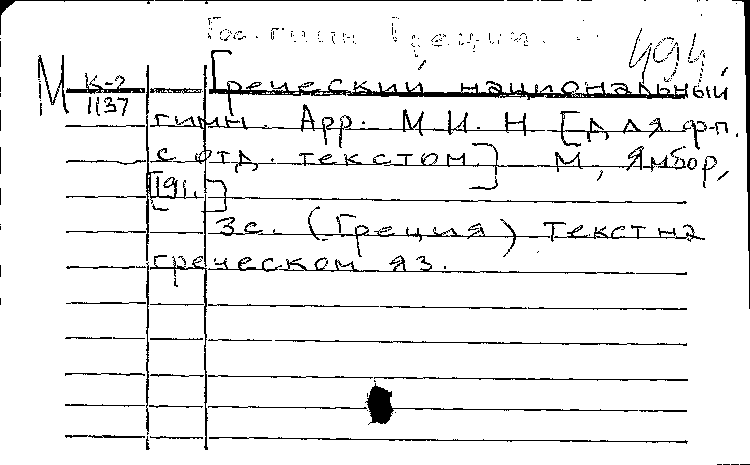 Гос. гимн Греции.
494
М К-2
1137
Греческий национальный
гимн. Арр. М. И. Н. [для ф-п.
с отд. текстом.] М, Ямбор,
[191.]
3с. (Греция) Текст на
греческом яз.